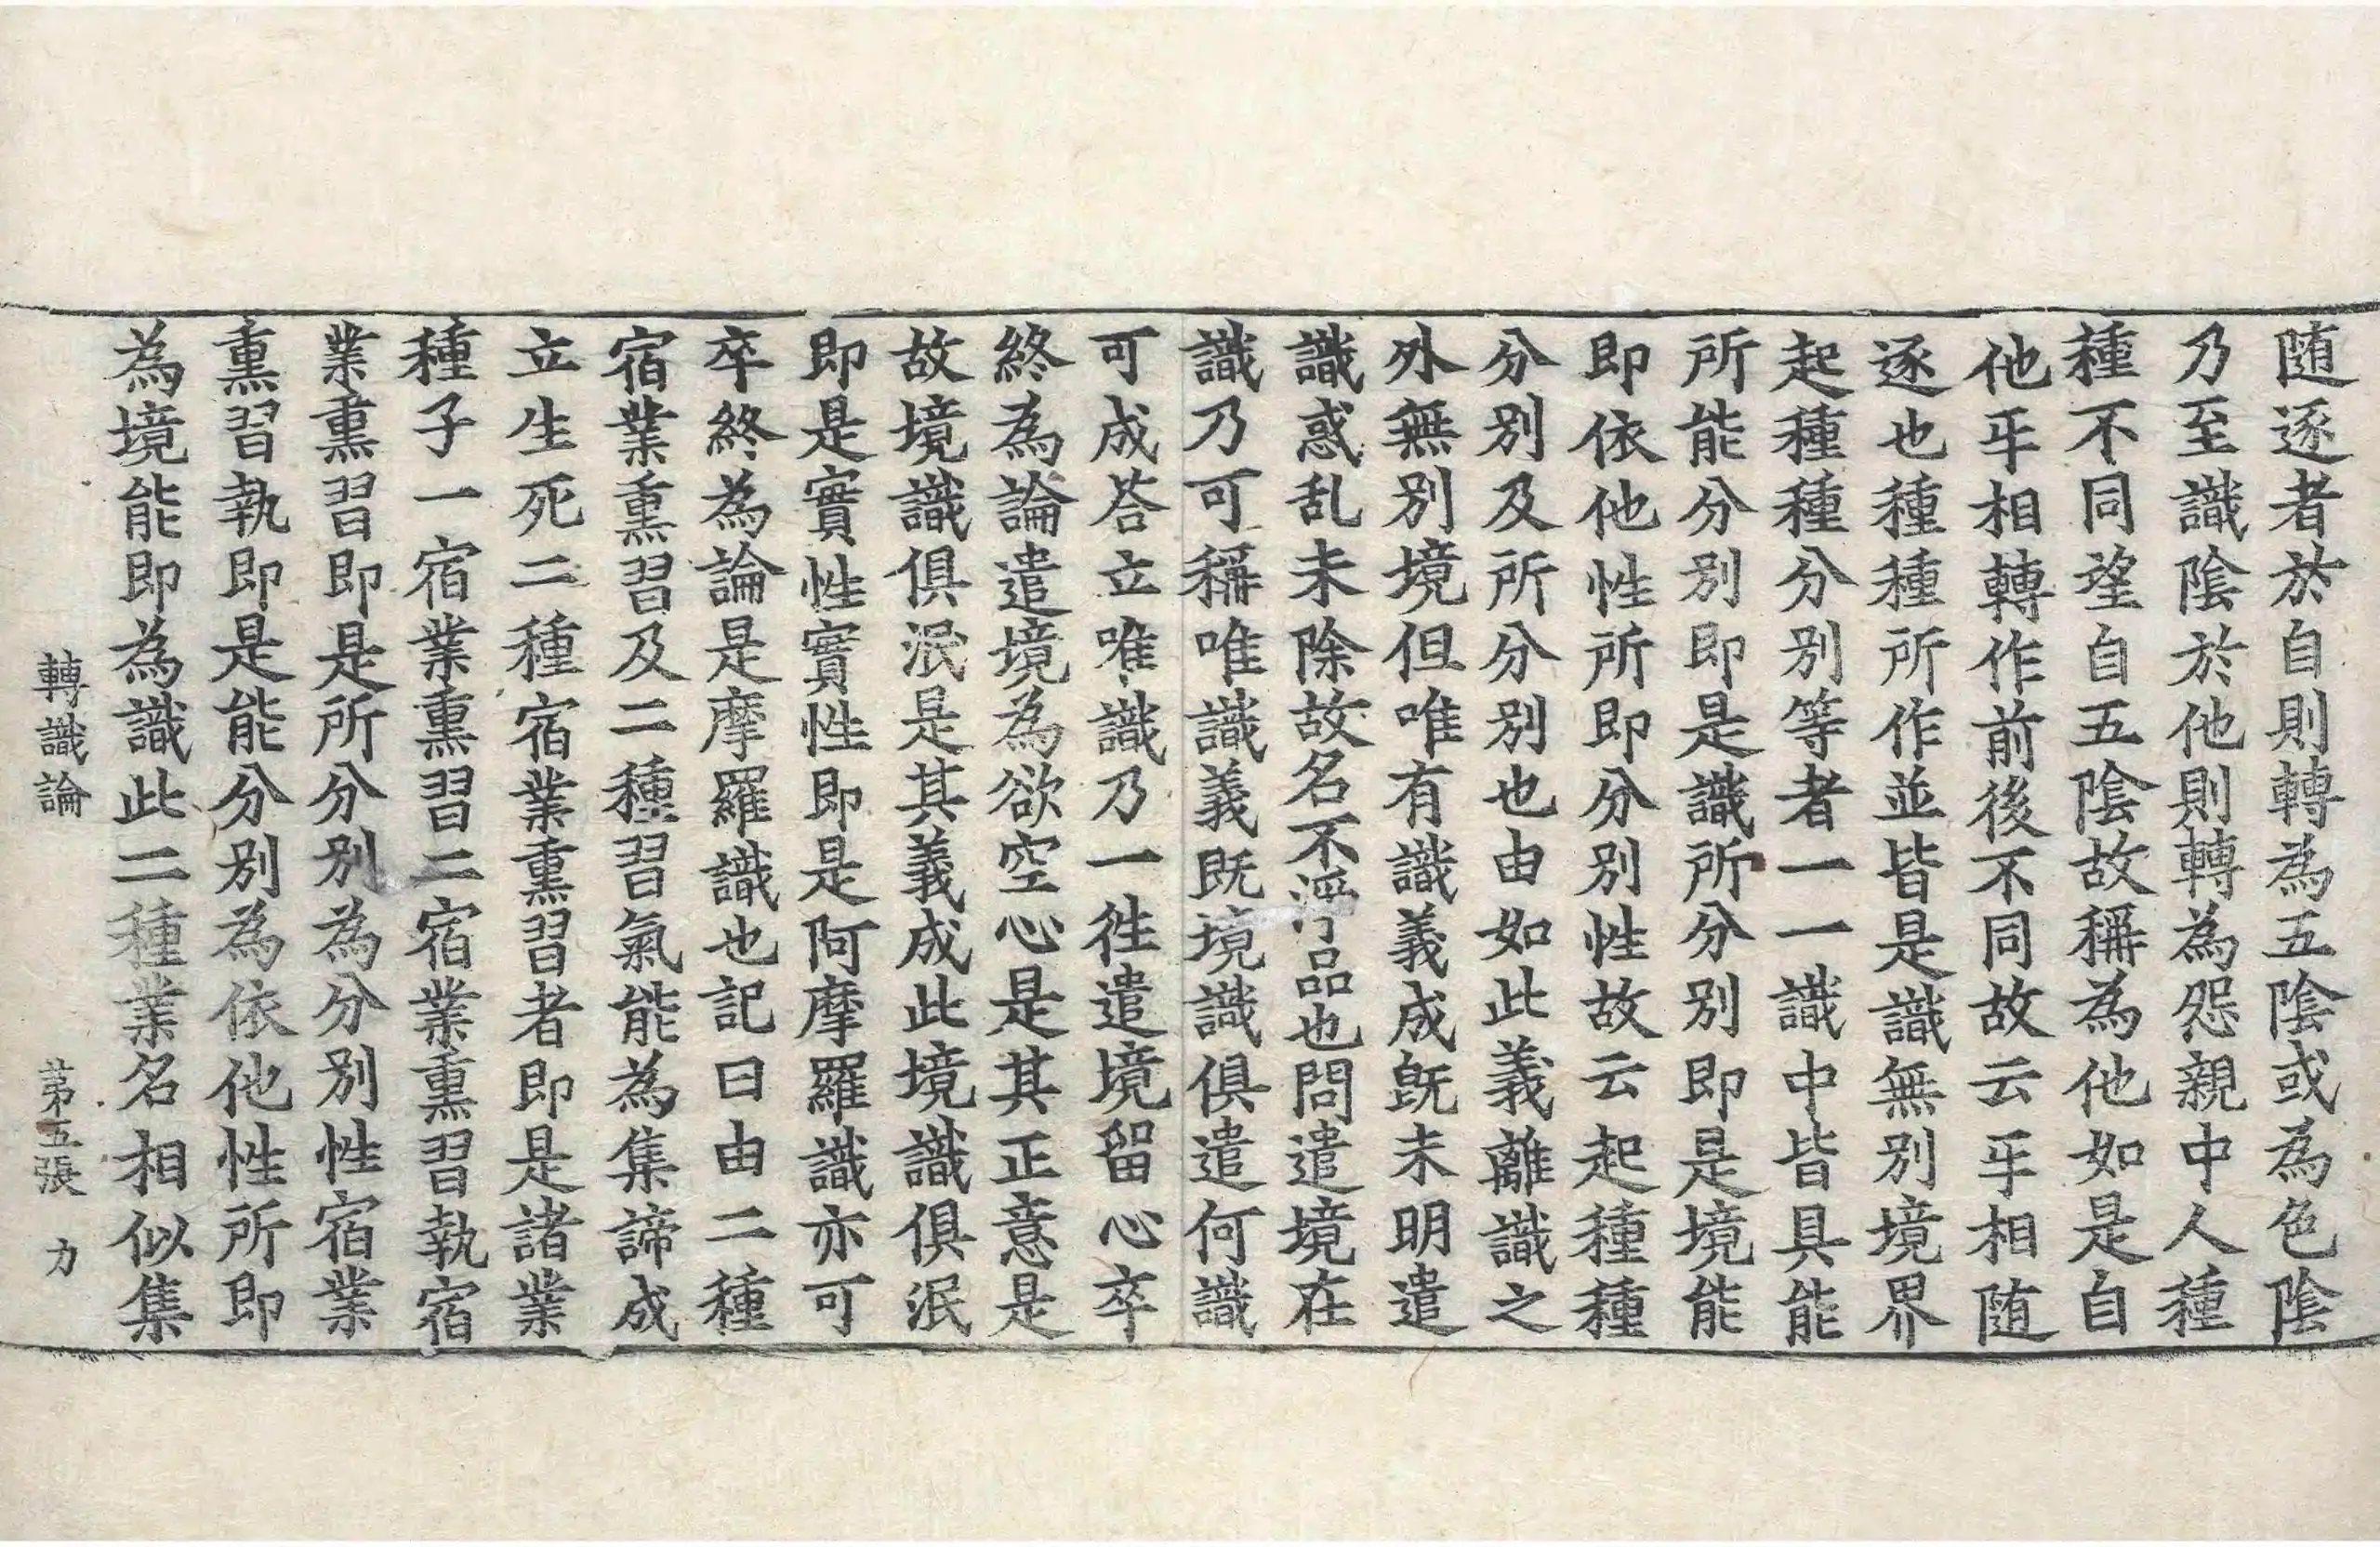 随逐者於自則轉為五陰或為色陰
乃至識陰於他則轉為怨親中人種
種不同望自五陰故稱為他如是自
他㸦相轉作前後不同故云㸦相随
逐也種種所作並皆是識無別境界
起種種分別等者一一識中皆具能
所能分別即是識所分別即是境能
即依他性所即分別性故云起種種
分別及所分別也由如此義離識之
外無別境但唯有識義成既未明遣
識惑乱未除故名不淨品也問遣境在
識乃可稱唯識義既境識俱遣何識
可成荅立唯識乃一往遣境留心卒
終為論遣境為欲空心是其正意是
故境識俱泯是其義成此境識俱泯
即是實性實性即是阿摩羅識亦可
卒終為論是摩羅識也記曰由二種
宿業熏習及二種習氣能為集諦成
立生死二種宿業熏習者即是諸業
種子一宿業熏習二宿業熏習執宿
業熏習即是所分別為分別性宿業
熏習執即是能分別為依他性所即
為境能即為識此二種業名相似集
轉識論 苐五張 力